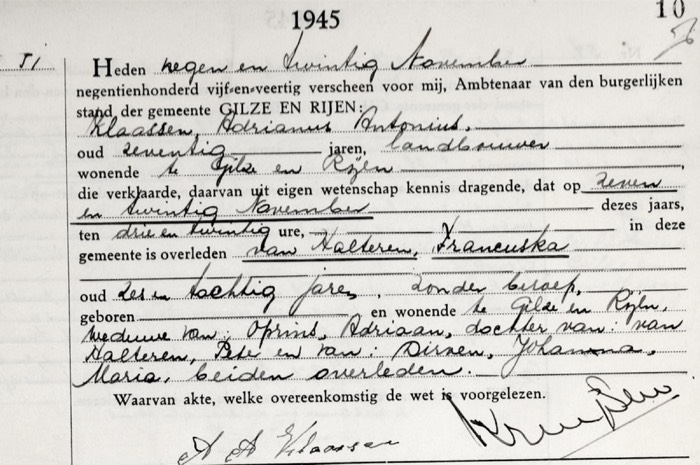 1945
10
51
56
Heden negen en twintig November
negentienhonderd vijf-en-veertig verscheen voor mij, Ambtenaar van den burgerlijken
stand der gemeente GILZE EN RIJEN:
Klaassen, Adrianus Antonius,
oud zeventig jaren, landbouwer
wonende te Gilze en Rijen
die verklaarde, daarvan uit eigen wetenschap kennis dragende, dat op zeven
en twintig November dezes jaars,
ten drie en twintig ure, in deze
gemeente is overleden van Halteren, Francuska
oud zes en tachtig jaren, zonder beroep,
geboren en wonende te Gilze en Rijen,
weduwe van: Oprins, Adriaan, dochter van: van
Halteren, Pete en van: Dirven, Johanna,
Maria, beiden overleden.
Waarvan akte, welke overeenkomstig de wet is voorgelezen.
A A Klaassen